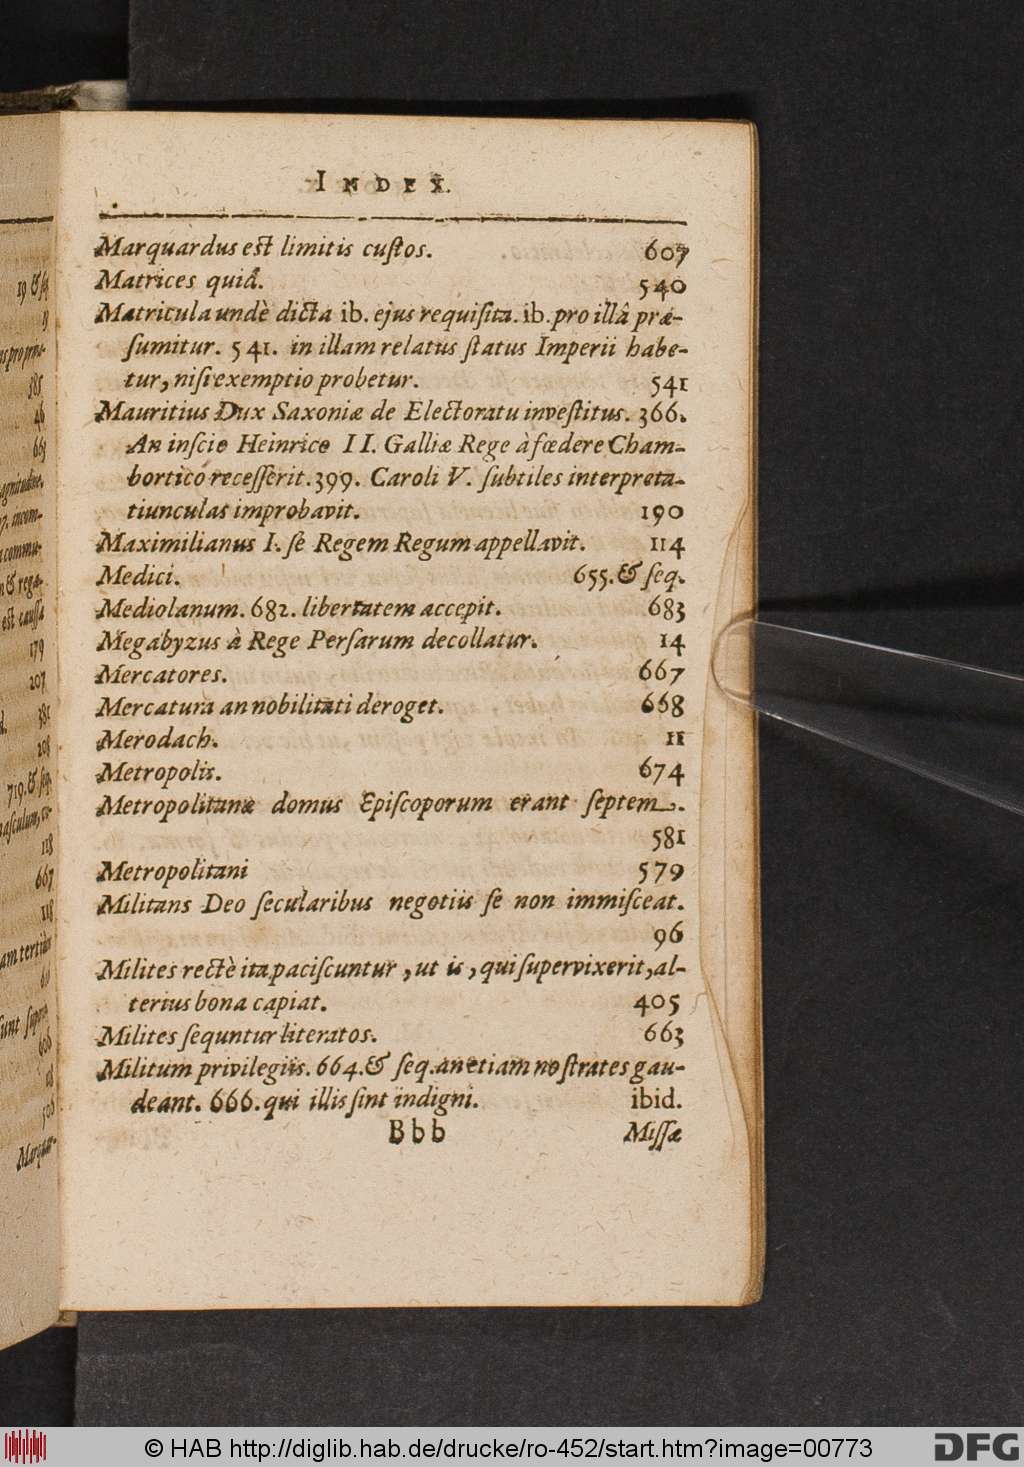 INDEX.
Marquardus est limitis custos. 607
Matrices quid. 540
Matricula undè dicta ib. ejus requisita. ib. pro illâ præ-
sumitur. 541. in illam relatus status Imperii habe-
tur, nisi exemptio probetur. 541
Mauritius Dux Saxoniæ de Electoratu investitus. 366.
An inscio Heinrico II. Galliæ Rege à fœdere Cham-
bortico recesserit. 399. Caroli V. subtiles interpreta-
tiunculas improbavit. 190
Maximilianus I. se Regem Regum appellavit. 114
Medici. 655. & seq.
Mediolanum. 682. libertatem accepit. 683
Megabyzus à Rege Persarum decollatur. 14
Mercatores. 667
Mercatura an nobilitati deroget. 668
Merodach. 11
Metropolis. 674
Metropolitanæ domus Episcoporum erant septem.
581
Metropolitani 579
Militans Deo secularibus negotiis se non immisceat.
96
Milites rectè ita paciscuntur, ut is, qui supervixerit, al-
terius bona capiat. 405
Milites sequntur literatos. 663
Militum privilegiis. 664. & seq. an etiam nostrates gau-
deant. 666. qui illis sint indigni. ibid.
Bbb Missæ
19 & seq
9
385
46
663
agnitudine.
incom-
commu-
& rega-
est causa
179
207
381
208
719. & seq.
masculum,
118
667
118
am tertiùs
60
sunt
606
506
Marquar-
© HAB http://diglib.hab.de/drucke/ro-452/start.htm?image=00773
DFG